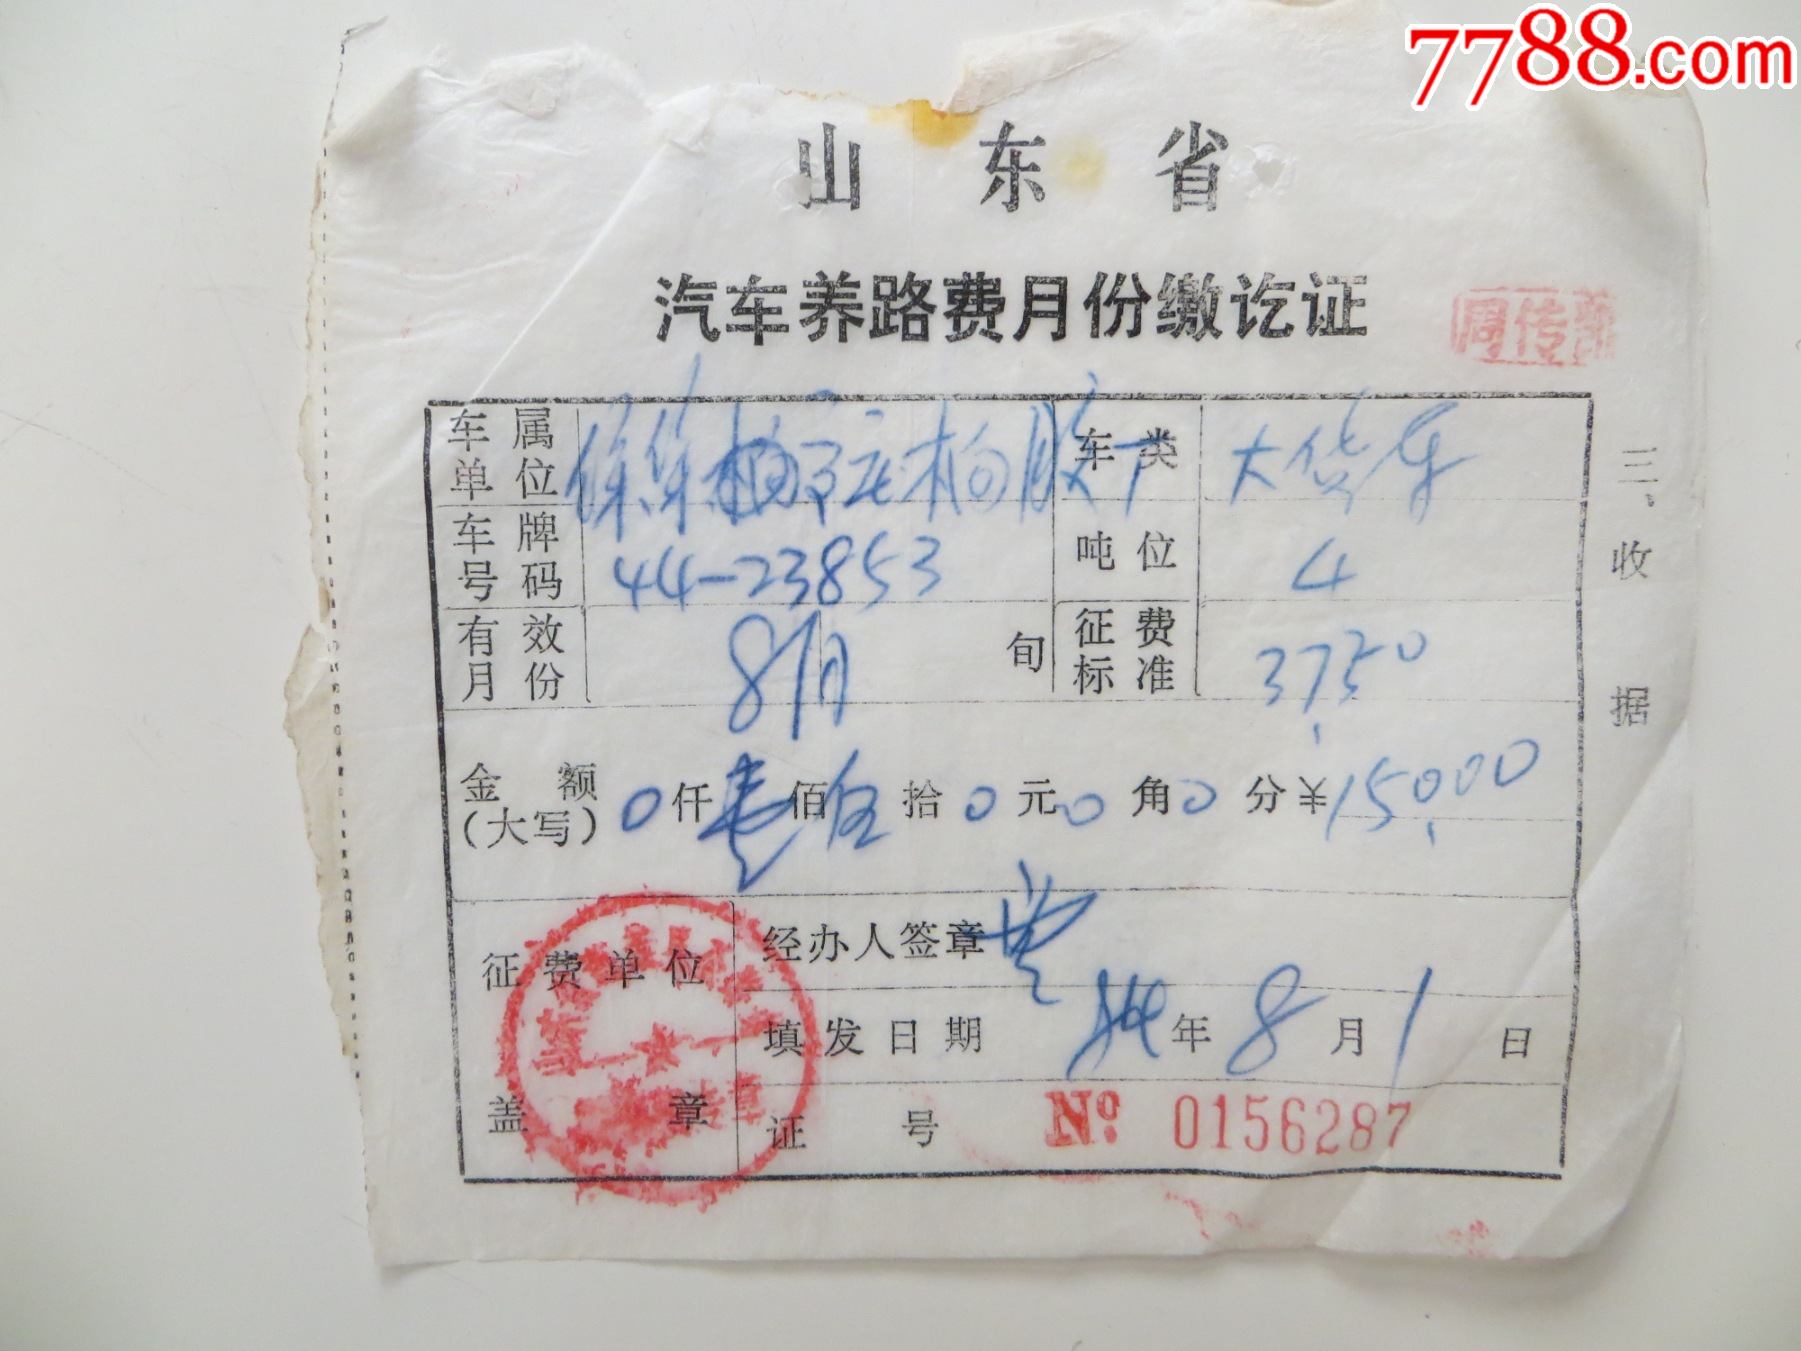 7788.com
山东省
汽车养路费月份缴讫证
车属单位
车类 大货车
车牌号码 44-23853
吨位 4
有效月份 8月 旬
征费标准 37.50
金额(大写) 0仟壹佰伍拾0元0角0分 ¥150.00
征费单位盖章
经办人签章
填发日期 84年8月1日
证号 No 0156287
三、收据